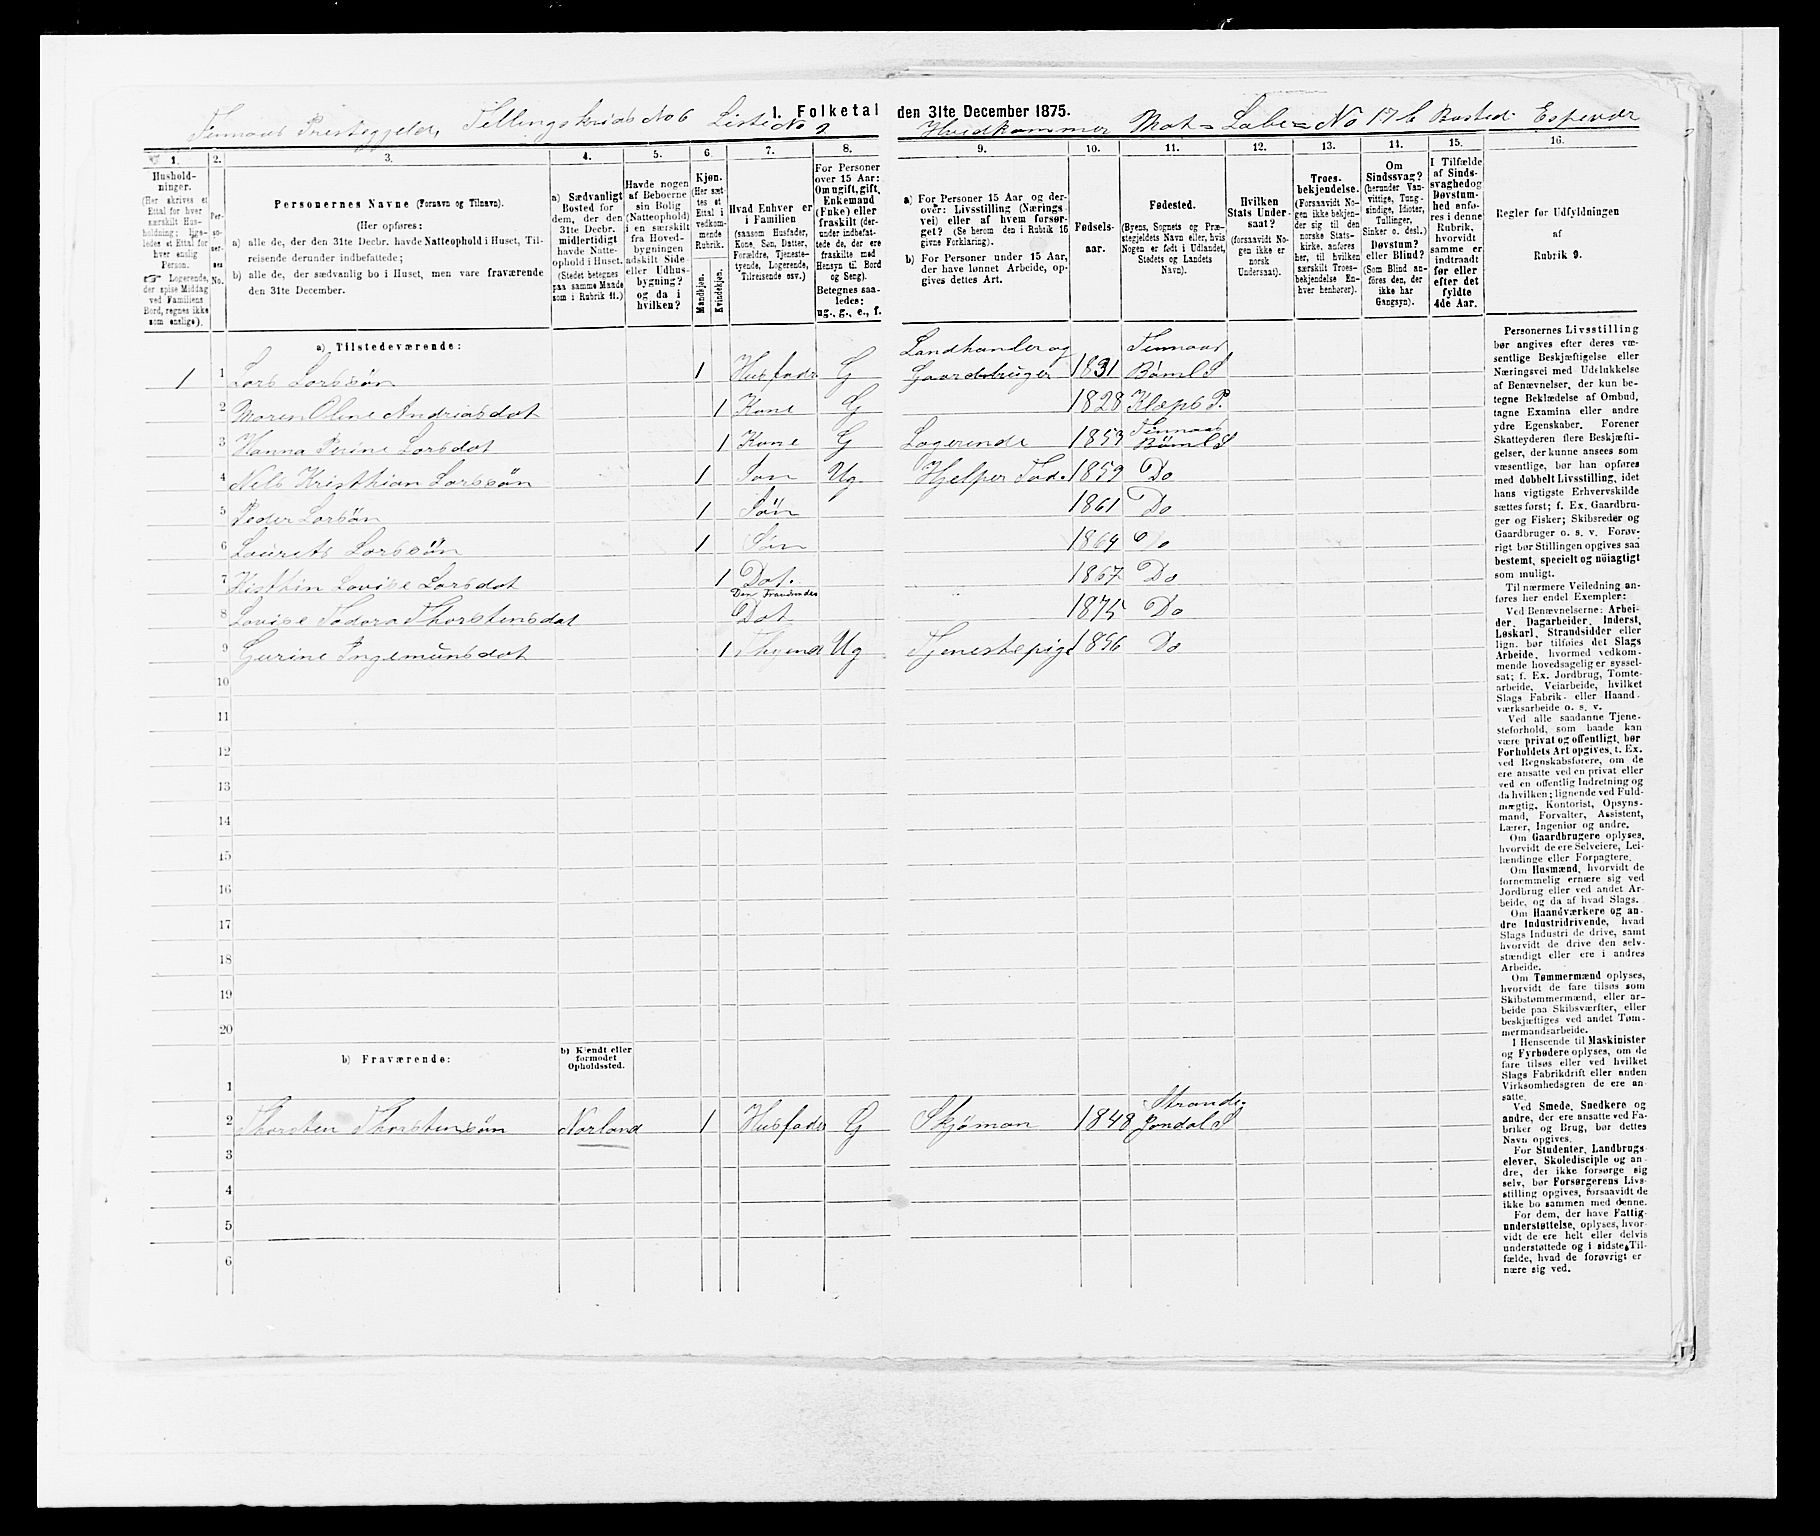 1. Folketal den 31te December 1875.
Finnaas Prestegjeld, Tellingskrids No 6 Liste No 2 Hvidkammer Mat= Løbe= No 17 b Bosted Espevær
1. 2. 3. 4. 5. 6. 7. 8. 9. 10. 11. 12. 13. 14. 15. 16.
Hushold-
ninger.
(Her skrives et
Ettal for hver
særskilt Hus-
holdning; lige-
ledes et Ettal for
hver enslig
Person.
☞ Logerende,
der spise Middag
ved Familiens
Bord, regnes ikke
som enslige).
Per-
so-
ner-
nes
No.
Personernes Navne (Fornavn og Tilnavn).
(Her opføres:
a) alle de, der den 31te Decbr. havde Natteophold i Huset, Til-
reisende derunder indbefattede;
b) alle de, der sædvanlig bo i Huset, men vare fraværende
den 31te December.
a) Sædvanligt
Bosted for
dem, der den
31te Decbr.
midlertidigt
havde Natte-
ophold i Huset.
(Stedet betegnes
paa samme Maade
som i Rubrik 11.)
Havde nogen
af Beboerne
sin Bolig
(Natteophold)
i en særskilt
fra Hoved-
bygningen
adskilt Side-
eller Udhus-
bygning?
og da i
hvilken?
Kjøn.
(Her sæt-
tes et
Ettal i
vedkom-
mende
Rubrik.
Mandkjøn.
Kvindekjøn.
Hvad Enhver er
i Familien
(saasom Husfader,
Kone, Søn, Datter,
Forældre, Tjeneste-
tyende, Logerende,
Tilreisende osv.)
For Personer
over 15 Aar:
Om ugift, gift,
Enkemand
(Enke) eller
fraskilt (der-
under indbefat-
tede de, der ere
fraskilte med
Hensyn til Bord
og Seng).
Betegnes saa-
ledes:
ug., g., e., f.
a) For Personer 15 Aar og der-
over: Livsstilling (Nærings-
vei) eller af hvem forsør-
get? (Se herom den i Rubrik 16
givne Forklaring).
b) For Personer under 15 Aar,
der have lønnet Arbeide, op-
gives dettes Art.
Fødsels-
aar.
Fødested.
(Byens, Sognets og Præ-
stegjeldets Navn eller, hvis
Nogen er født i Udlandet,
Stedets og Landets
Navn).
Hvilken
Stats Under-
saat?
(forsaavidt No-
gen ikke er
norsk
Undersaat).
Troes-
bekjendelse.
(Forsaavidt No-
gen ikke bekjen-
der sig til den
norske Stats-
kirke, anføres
her, til hvilken
særskilt Troes-
bekjendelse En-
hver henhører).
Om
Sindssvag?
(herunder Van-
vittige, Tung-
sindige, Idioter,
Tullinger,
Sinker o. desl.)
Døvstum?
eller Blind?
(Som Blind an-
føres den, der
ikke har
Gangsyn).
I Tilfælde
af Sinds-
svaghed og
Døvstum-
hed anfø-
res i denne
Rubrik,
hvorvidt
samme er
indtraadt
før eller
efter det
fyldte
4de Aar.
Regler for Udfyldningen
af
Rubrik 9.
a) Tilstedeværende:
1 1 Lars Larssøn 1 Husfader G Landhanler og Gaardsbruger 1831 Finnaas Bømls S
2 Maren Oline Andriasdat 1 Kone G 1828 Klæps P.
3 Hanna Perine Larsdat 1 Kone G Logerende 1853 Finnaas Bømls S
4 Nels Kristhian Larssøn 1 Søn Ug Hjelper Fad. 1859 Do
5 Peder Larsøn 1 Søn 1861 Do
6 Laurits Larssøn 1 Søn 1864 Do
7 Kisthin Lovise Larsdat 1 Dat. 1867 Do
8 Lovise Todora Thorstensdat Den Fraværendes Dat 1875 Do
9 Gurine Ingemunsdat 1 Thyende Ug Tjenestepige 1856 Do
10
11
12
13
14
15
16
17
18
19
20
b) Fraværende:
b) Kjendt eller
formodet
Opholdssted.
1
2 Thorsten Thorstensøn Norland 1 Husfader G Skjøman 1848 Strande. Jondal S
3
4
5
6
Personernes Livsstilling
bør angives efter deres væ-
sentlige Beskjæftigelse eller
Næringsvei med Udelukkelse
af Benævnelser, der kun be-
tegne Beklædelse af Ombud,
tagne Examina eller andre
ydre Egenskaber. Forener
Skatteyderen flere Beskjæfti-
gelser, der kunne ansees som
væsentlige, bør han opføres
med dobbelt Livsstilling, idet
hans vigtigste Erhvervskilde
sættes først; f. Ex. Gaardbru-
ger og Fisker; Skibsreder og
Gaardbruger o. s. v. Forøv-
rigt bør Stillingen opgives saa
bestemt, specielt og nöiagtigt
som muligt.
Til nærmere Veiledning an-
føres her endel Exempler:
Ved Benævnelserne: Arbei-
der, Dagarbeider, Inderst,
Løskarl, Strandsidder eller
lign. bør tilføies det Slags
Arbeide, hvormed vedkom-
mende hovedsagelig er syssel-
sat; f. Ex. Jordbrug, Tomte-
arbeide, Veiarbeide, hvilket
Slags Fabrik- eller Haand-
værksarbeide o. s. v.
Ved alle saadanne Tjene-
steforhold, som baade kan
være privat og offentligt, bør
Forholdets Art opgives, t. Ex.
ved Regnskabsførere, om de
ere ansatte ved en privat eller
ved en offentlig Indretning og
da hvilken; lignende ved Fuld-
mægtig, Kontorist, Opsyns-
mand, Forvalter, Assistent,
Lærer, Ingeniør og andre.
Om Gaardbrugere oplyses,
hvorvidt de ere Selveiere, Lei-
lændinge eller Forpagtere.
Om Husmænd, hvorvidt de
fornemmelig ernære sig ved
Jordbrug eller ved andet Ar-
beide, og da af hvad Slags.
Om Haandværkere og an-
dre Industridrivende, hvad
Slags Industri de drive, samt
hvorvidt de drive den selv-
stændigt eller ere i andres
Arbeide.
Om Tømmermænd oplyses,
hvorvidt de fare tilsøs som
Skibstømmermænd, eller ar-
beide paa Skibsværfter, eller
beskjæftiges ved andet Tøm-
mermandsarbeide.
I Henseende til Maskinister
og Fyrbødere oplyses, om de
fare tilsøs eller ved hvilket
Slags Fabrikdrift eller anden
Virksomhedsgren de ere an-
satte.
Ved Smede, Snedkere og
andre, der ere ansatte ved Fa-
briker og Brug, bør dettes
Navn opgives.
For Studenter, Landbrugs-
elever, Skoledisciple og an-
dre, der ikke forsørge sig
selv, bør Forsørgerens Livs-
stilling opgives, forsaavidt de
ikke bo sammen med denne.
For dem, der have Fattig-
understøttelse, oplyses, hvor-
vidt de ere helt eller delvis
understøttede og i sidste Til-
fælde, hvad de forøvrigt er-
nære sig ved.